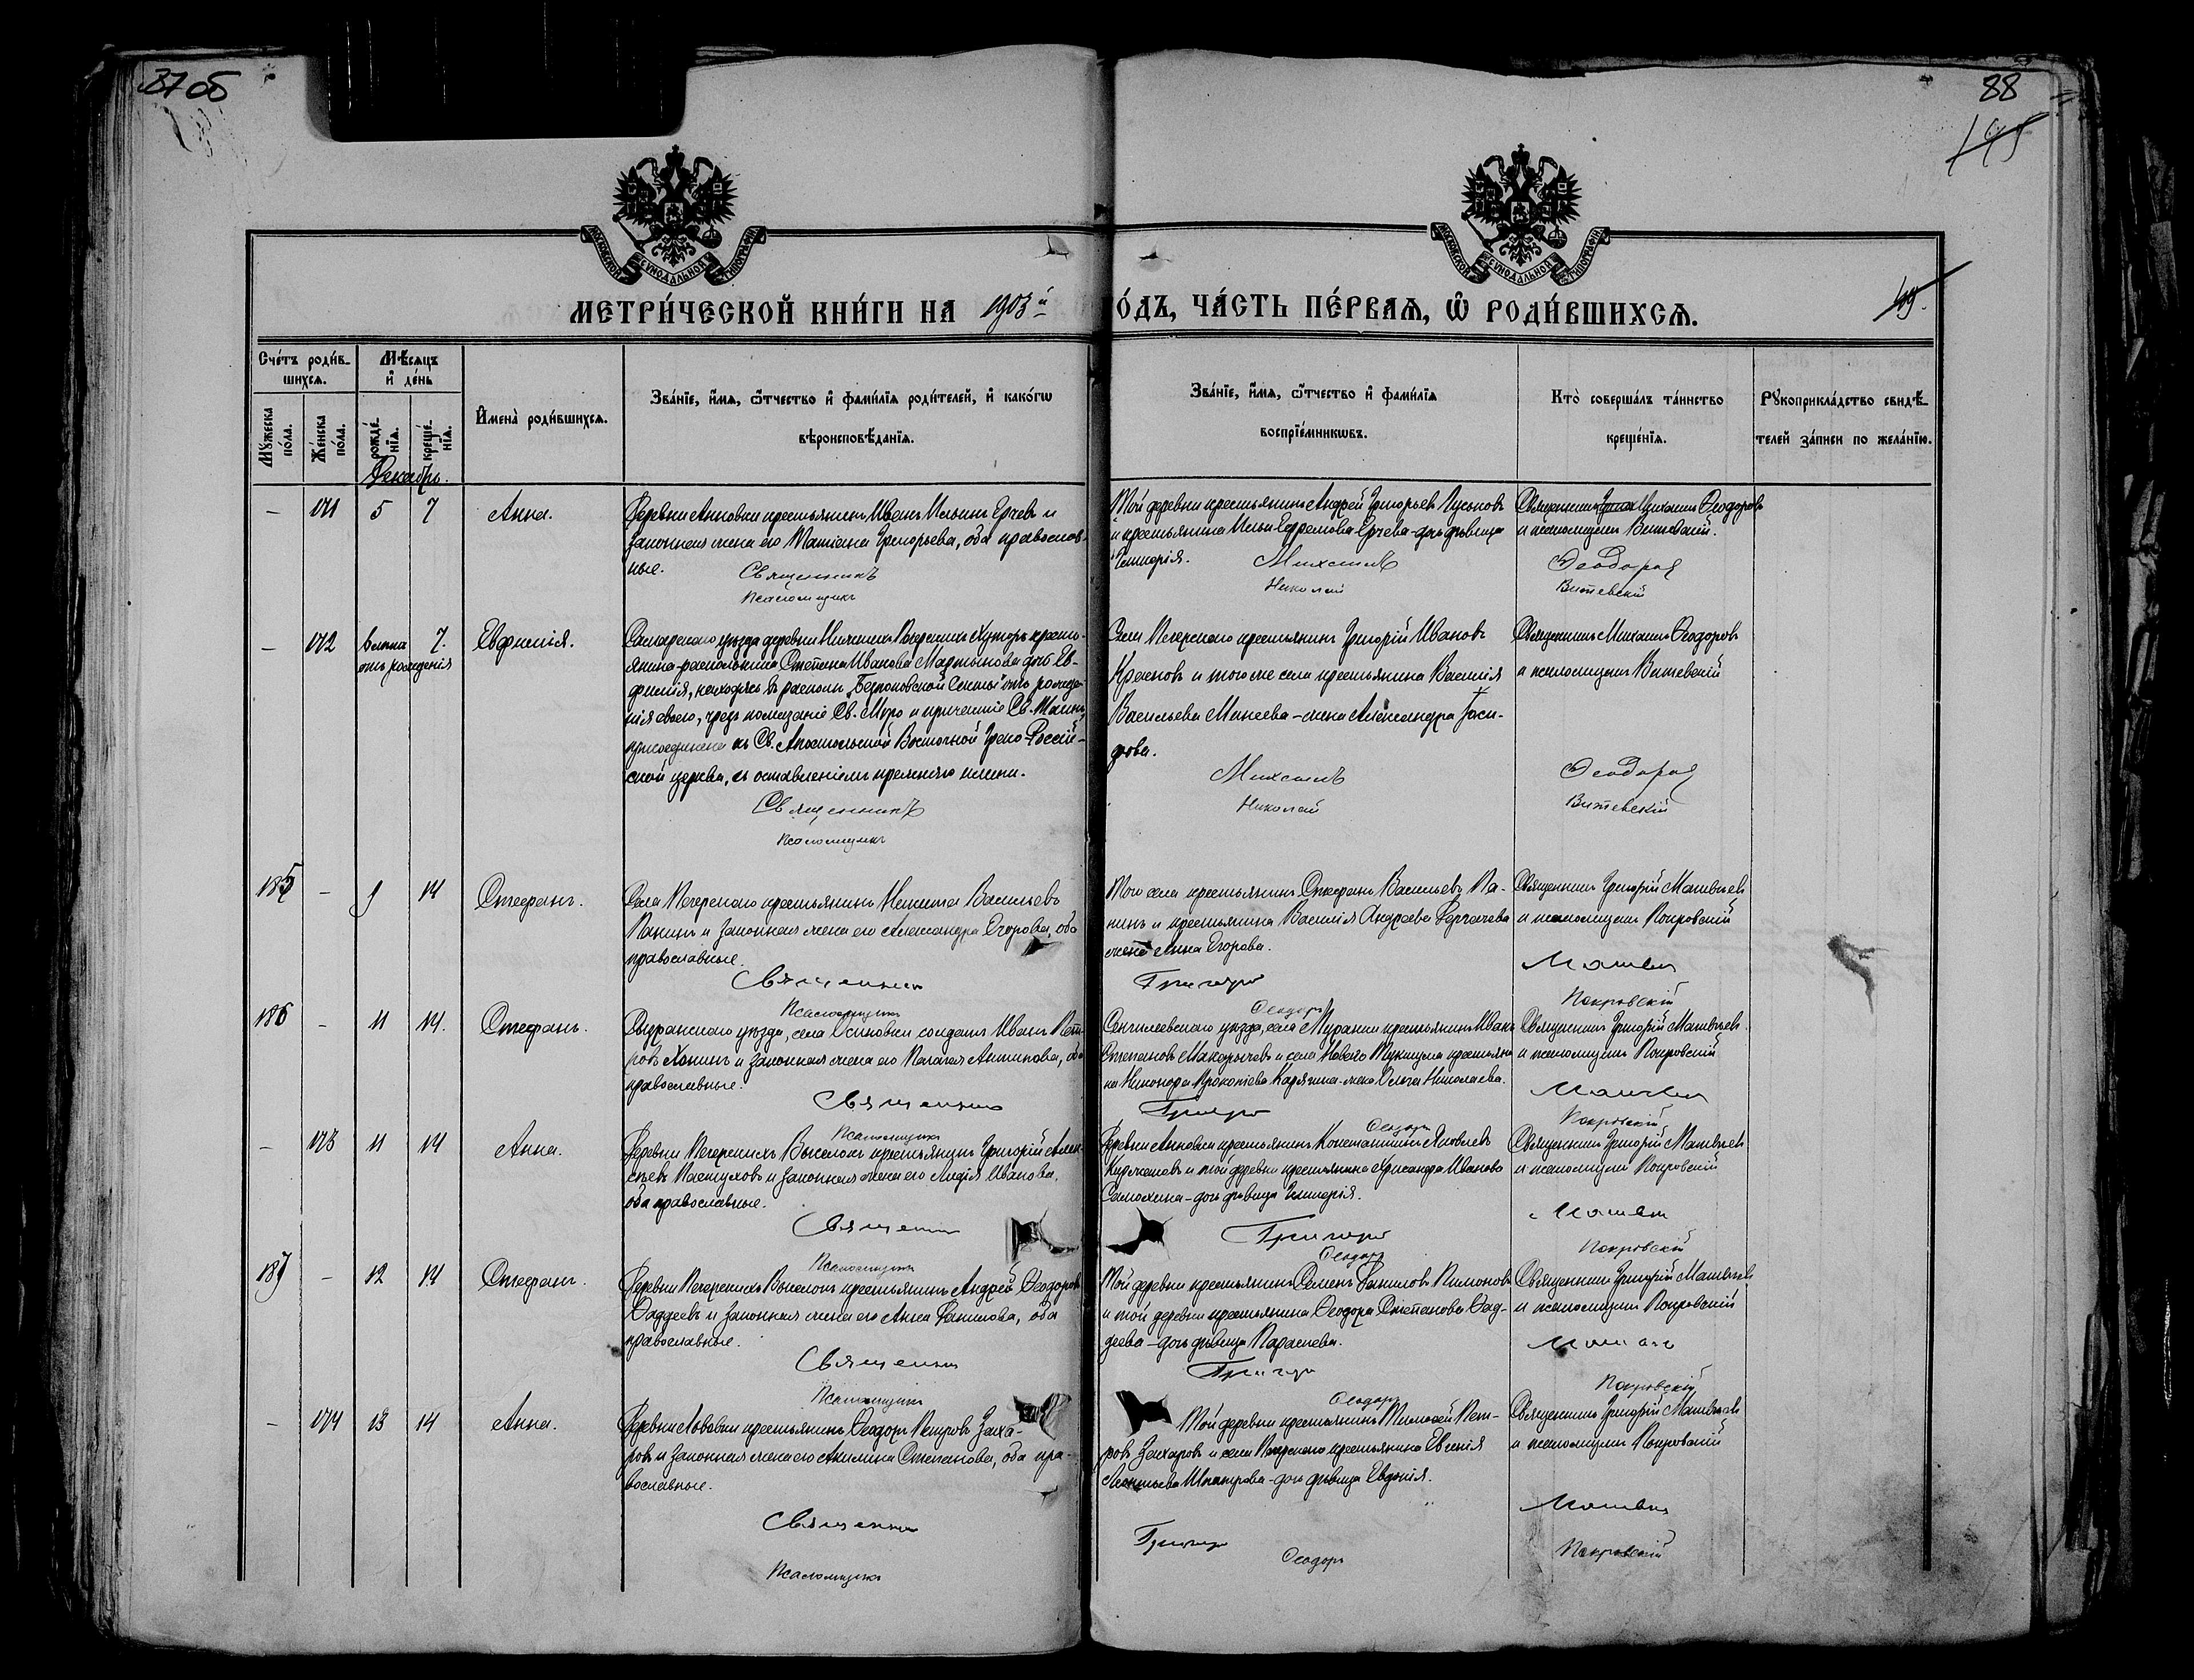 87 об
88
МОСКОВСКОЙ СѴНОДАЛЬНОЙ ТИПОГРАФІИ
МОСКОВСКОЙ СѴНОДАЛЬНОЙ ТИПОГРАФІИ
МЕТРИ́ЧЕСКОЙ КНИ́ГИ НА 1903й
О́ДЪ, ЧА́СТЬ ПЕ́РВАѦ, Ѽ РОДИ́ВШИХСѦ.
Сче́тъ роди́в-
шихсѧ.
Мѣсѧцъ
и҆ де́нь
Мꙋ́жеска
по́ла.
Же́нска
по́ла.
рожде́-
нїѧ.
креще́-
нїѧ.
И҆мена̀ роди́вшихсѧ.
Зва́нїе, и҆́мѧ, ѻ҆́тчество и҆ фами́лїѧ роди́телей, и҆ како́гѡ
вѣроисповѣ́данїѧ.
Зва́нїе, и҆́мѧ, ѻ҆́тчество и҆ фами́лїѧ
воспрїе́мникѡвъ.
Кто̀ соверша́лъ та́инство
креще́нїѧ.
Рꙋкоприкла́дство свидѣ́-
телей за́писи по жела́нїю.
Декабрь.
— 171 5 7 Анна.
Деревни Анновки крестьянинъ Иванъ Ильинъ Ерчевъ и
законная жена его Татіана Григорьева, оба православ-
ные.
Священникъ
Псаломщикъ
Той деревни крестьянинъ Андрей Григорьевъ
и крестьянина Ильи Ефремова Ерчева - дочь дѣвица
Гликерія.
Михаилъ
Николай
Священникъ Михаилъ Ѳеодоровъ
и псаломщикъ Витевскій.
Ѳеодоровъ
Витевскій
— 172 7. Евфимія.
отъ рожденія
Самарскаго уѣзда деревни Печерскихъ Хуторъ кресть-
янина-раскольника Степана Иванова Мартынова дочь Ев-
фимія, находясь въ расколѣ „Безпоповской Секты" отъ рожде-
нія своего, чрезъ помазаніе Св. Муро и причащеніе Св. Таинъ
присоединена къ Св. Апостольской Восточной Греко-Россій-
ской церкви, съ оставленіемъ прежняго имени.
Священникъ
Псаломщикъ
Села Печерскаго крестьянинъ Григорій Ивановъ
Красновъ и того же села крестьянина Василія
Васильева Минеева - жена Александра
Михаилъ
Николай
Священникъ Михаилъ Ѳеодоровъ
и псаломщикъ Витевскій
Ѳеодоровъ
Витевскій
185 — 9 14 Стефанъ.
Села Печерскаго крестьянинъ Никита Васильевъ
Панинъ и законная жена его Александра Егорова, оба
православные.
Священникъ
Псаломщикъ
Того села крестьянинъ Стефанъ Васильевъ Па-
нинъ и крестьянина Василія Андреева
жена Анна Егорова.
Григорій
Ѳеодоръ
Священникъ Григорій Матвѣевъ
и псаломщикъ Покровскій
Матвѣевъ
Покровскій
186 — 11 14. Стефанъ.
Сызранскаго уѣзда, села Осиновки солдатъ Иванъ Пет-
ровъ Хонинъ и законная жена его Пелагея Антипова, оба
православные.
Священникъ
Псаломщикъ
Сенгилеевскаго уѣзда, села Муранки крестьянинъ Иванъ
Степановъ Макарычевъ и села Новаго Тукшума крестьяни-
на Никанора Прокопіева Карягина - жена Ольга Николаева.
Григорій
Ѳеодоръ
Священникъ Григорій Матвѣевъ
и псаломщикъ Покровскій
Матвѣевъ
Покровскій
— 173 11 14 Анна.
Деревни Печерскихъ Выселокъ крестьянинъ Григорій Алек-
сѣевъ Пастуховъ и законная жена его Лидія Иванова,
оба православные.
Священникъ
Псаломщикъ
Деревни Анновки крестьянинъ Константинъ Яковлевъ
и той деревни крестьянина Хрисанфа Иванова
Самохина - дочь дѣвица Гликерія.
Григорій
Ѳеодоръ
Священникъ Григорій Матвѣевъ
и псаломщикъ Покровскій
Матвѣевъ
Покровскій
187 — 12 14 Стефанъ.
Деревни Печерскихъ Выселокъ крестьянинъ Андрей Ѳеодоровъ
Ѳаддеевъ и законная жена его Анна Данилова, оба
православные.
Священникъ
Псаломщикъ
Той деревни крестьянинъ Семенъ Даниловъ Пимоновъ
и той деревни крестьянина Ѳеодора Степанова Ѳад-
деева - дочь дѣвица Параскева.
Григорій
Ѳеодоръ
Священникъ Григорій Матвѣевъ
и псаломщикъ Покровскій
Матвѣевъ
Покровскій
— 174 13 14 Анна.
Деревни Львовки крестьянинъ Ѳеодоръ Петровъ Заха-
ровъ и законная жена его Акилина Степанова, оба пра-
вославные.
Священникъ
Псаломщикъ
Той деревни крестьянинъ Тимоѳей Пет-
ровъ Захаровъ и села Печерскаго крестьянина Евгенія
дочь дѣвица Евдокія.
Григорій
Ѳеодоръ
Священникъ Григорій Матвѣевъ
и псаломщикъ Покровскій
Матвѣевъ
Покровскій